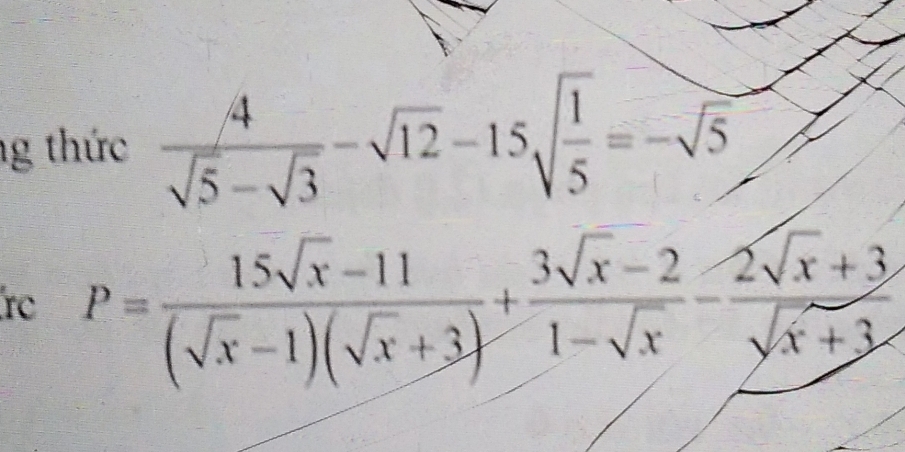 thức 4/(√5 − √3) − √12 − 15√(1/5) = −√5
P = (15√x − 11)/((√x − 1)(√x + 3)) + (3√x − 2)/(1 − √x) − (2√x + 3)/(√x + 3)